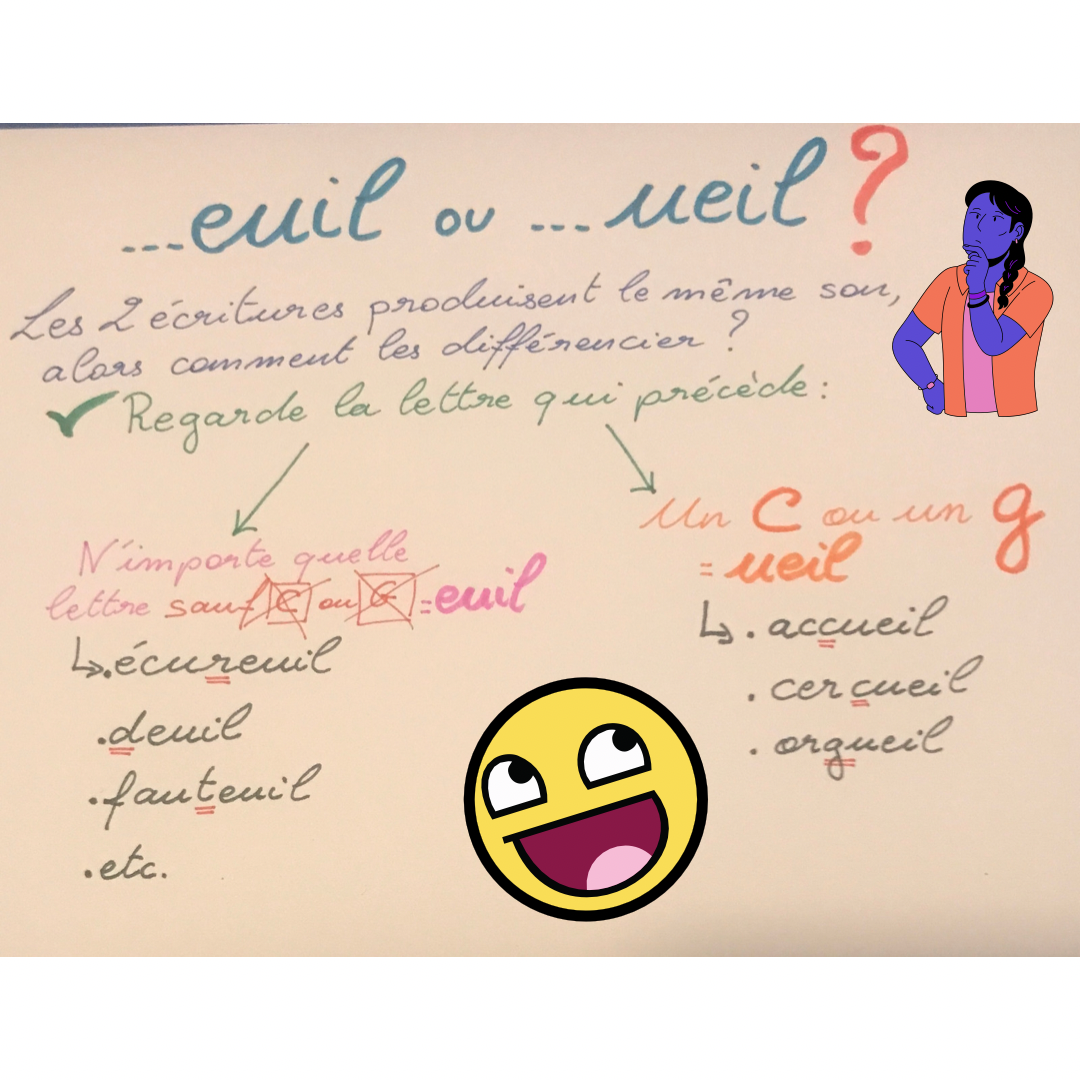 ...euil ou ...ueil ?
Les 2 écritures produisent le même son,
alors comment les différencier ?
✓ Regarde la lettre qui précède :
N'importe quelle
lettre sauf C ou G = euil
↳ . écureuil
. deuil
. fauteuil
. etc.
Un C ou un g
= ueil
↳ . accueil
. cercueil
. orgueil